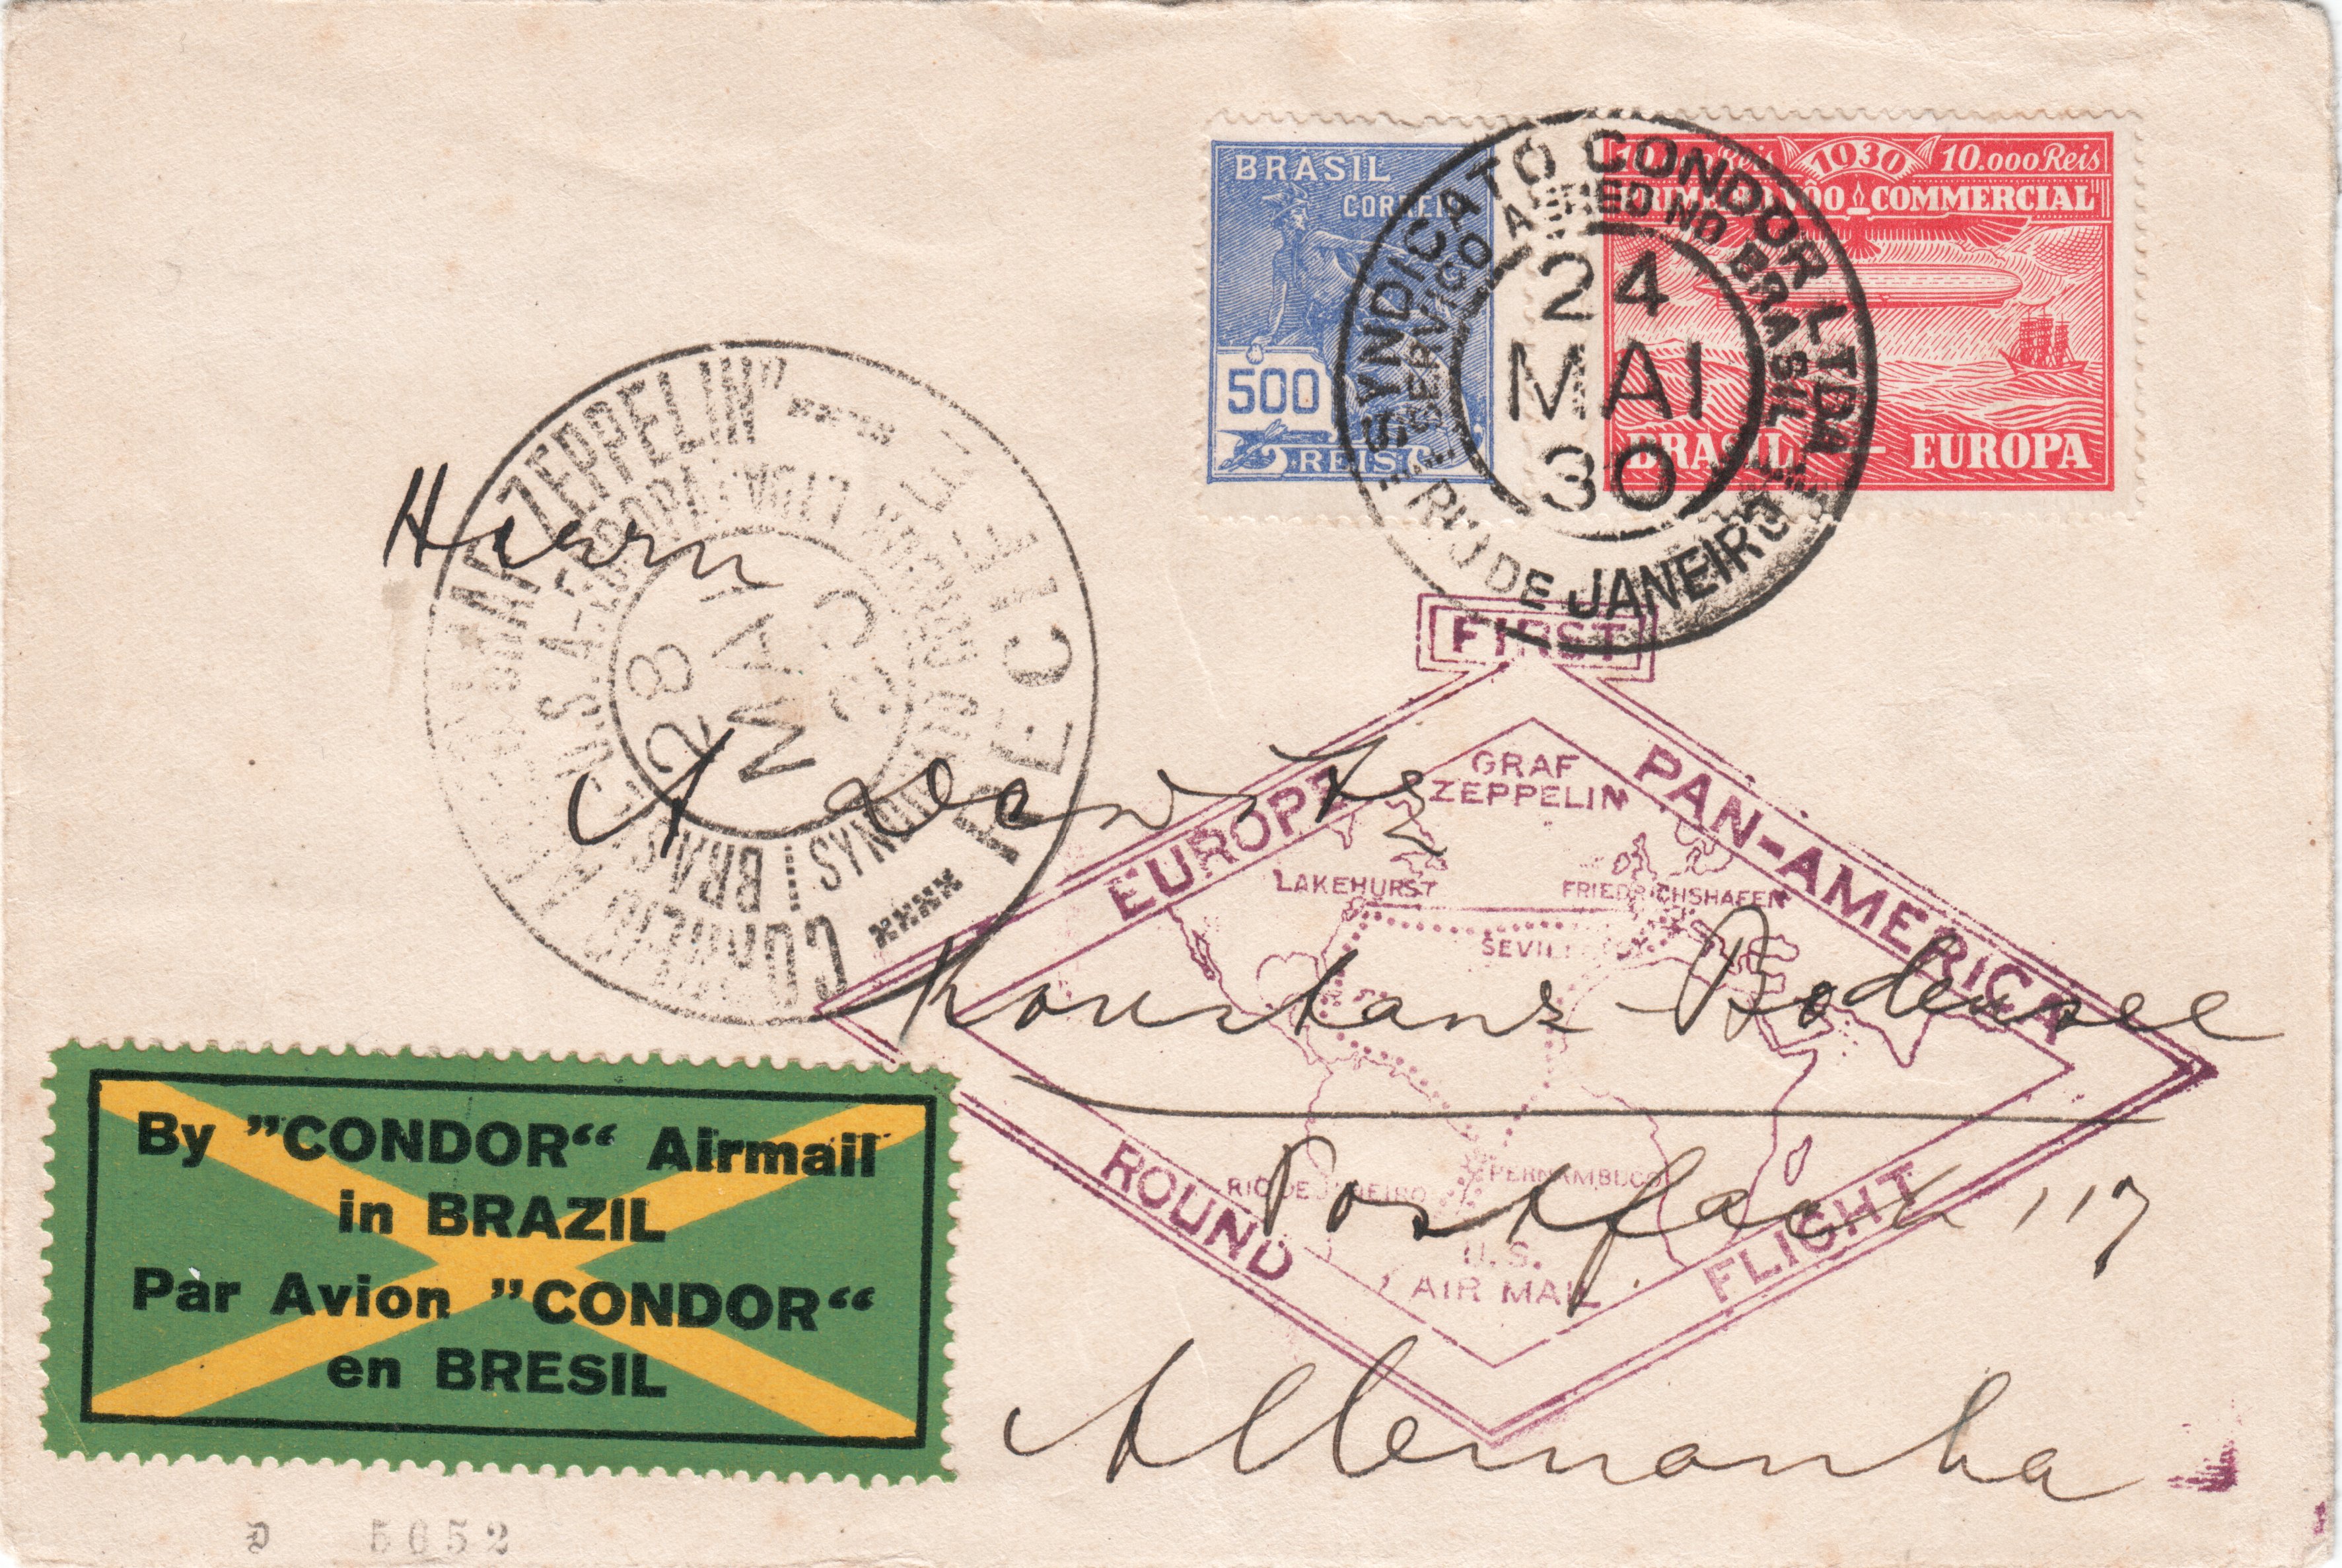 BRASIL
CORREIO
500
REIS
10.000 Reis 1930 10.000 Reis
PRIMEIRO VÔO COMMERCIAL
BRASIL — EUROPA
SYNDICATO CONDOR LTDA
SERVIÇO AEREO NO BRASIL
24
MAI
30
RIO DE JANEIRO
ZEPPELIN"
U.S.A.-EUROPA
28
MAY
30
RECIFE
CORREIO
BRASIL
Herrn
FIRST
EUROPE PAN-AMERICA
GRAF
ZEPPELIN
LAKEHURST FRIEDRICHSHAFEN
SEVILLE
Konstanz - Bodensee
RIO DE JANEIRO PERNAMBUCO
Postfach 117
ROUND FLIGHT
U.S.
AIR MAIL
Allemanha
By "CONDOR" Airmail
in BRAZIL
Par Avion "CONDOR"
en BRESIL
D 5652